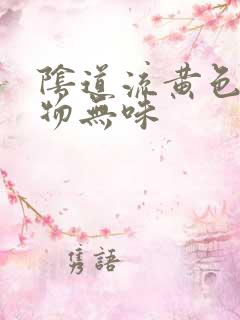 陰道流黃色
物無味
隽語